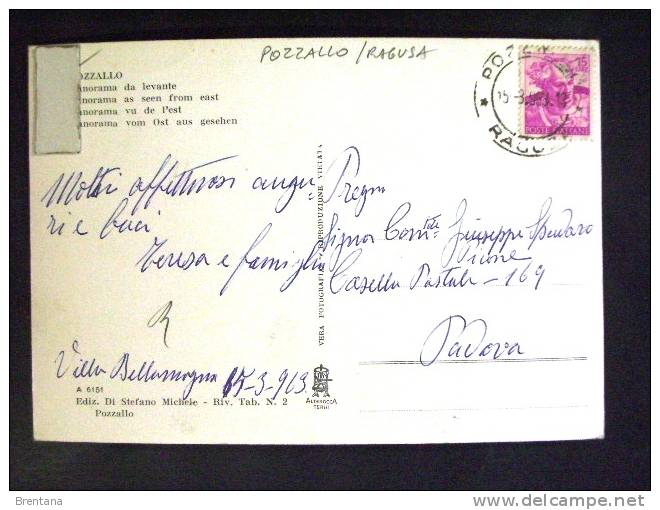 POZZALLO / RAGUSA
POZZALLO
anorama da levante
anorama as seen from east
anorama vu de l'est
anorama vom Ost aus gesehen
15
POSTE ITALIANE
15-3
RAGUSA
Molti affettuosi augu
ri e baci
Teresa e famiglia
R
Villa Bellamagna 15-3-963
A 6151
Ediz. Di Stefano Michele - Riv. Tab. N. 2
Pozzallo
VERA FOTOGRAFIA RIPRODUZIONE VIETATA
ALTEROCCA
TERNI
Pregmo
Signor Giuseppe Spadaro
Casella Postale - 169
Padova
Brentana
delcampe.net